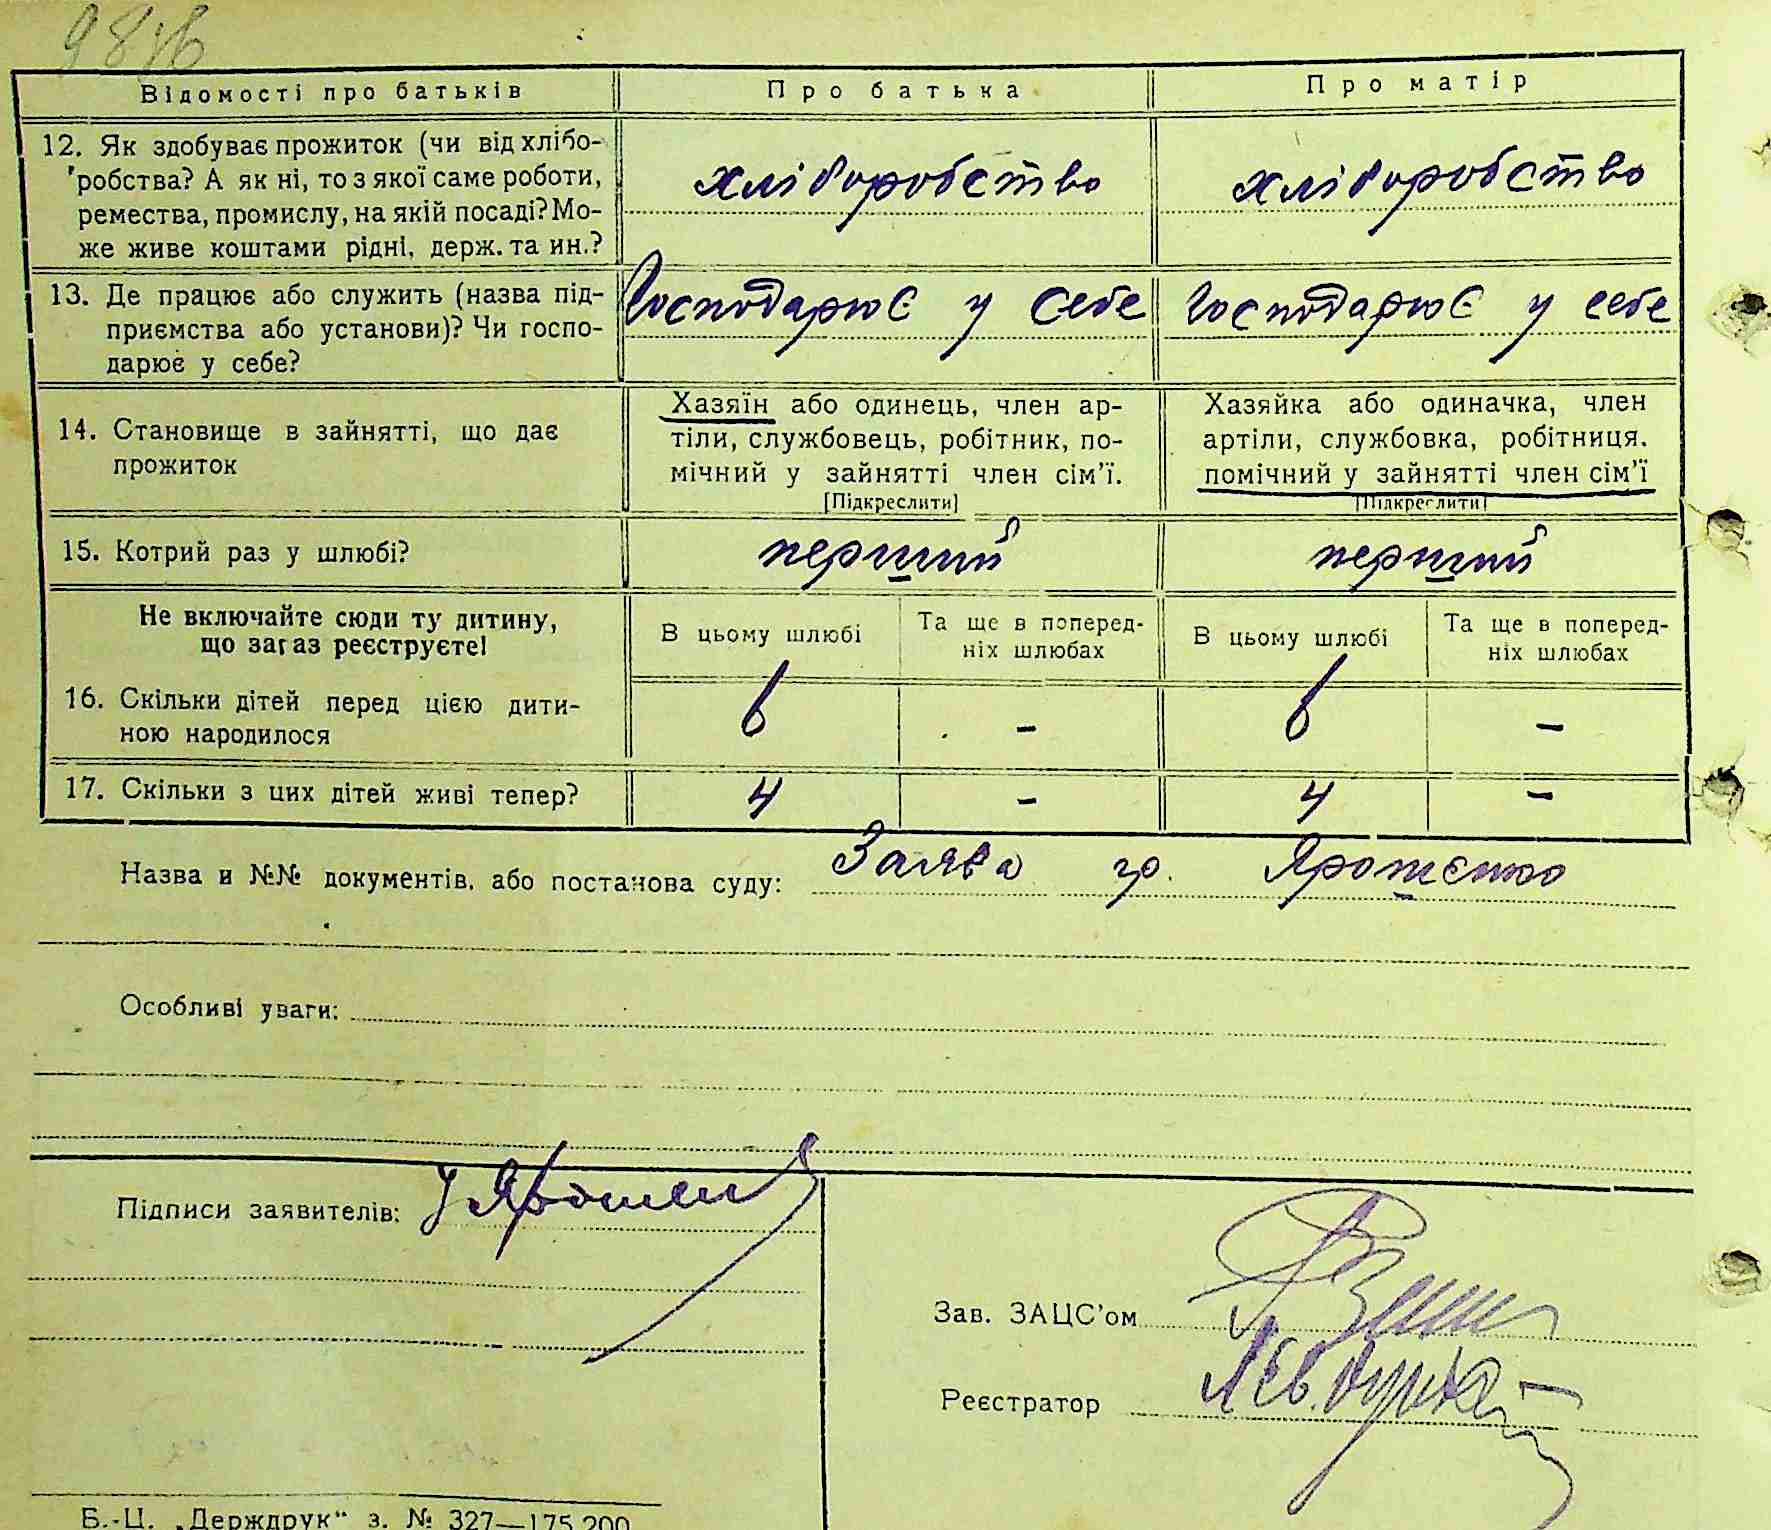 98зв
Відомості про батьків Про батька Про матір
12. Як здобуває прожиток (чи від хлібо-
робства? А як ні, то з якої саме роботи,
ремества, промислу, на якій посаді? Мо-
же живе коштами рідні, держ. та ин.?
хліборобство хліборобство
13. Де працює або служить (назва під-
приємства або установи)? Чи госпо-
дарює у себе?
Господарює у себе Господарює у себе
14. Становище в зайнятті, що дає
прожиток
Хазяїн або одинець, член ар-
тіли, службовець, робітник, по-
мічний у зайнятті член сім'ї.
[Підкреслити]
Хазяйка або одиначка, член
артіли, службовка, робітниця.
помічний у зайнятті член сім'ї
[Підкреслити]
15. Котрий раз у шлюбі?
перший перший
Не включайте сюди ту дитину,
що зараз реєструєте!
В цьому шлюбі
Та ще в поперед-
ніх шлюбах
В цьому шлюбі
Та ще в поперед-
ніх шлюбах
16. Скільки дітей перед цією дити-
ною народилося
6 - 6 -
17. Скільки з цих дітей живі тепер? 4 - 4 -
Назва и №№ документів, або постанова суду: Заява гр. Ярошенко
Особливі уваги:
Підписи заявителів:
Зав. ЗАЦС'ом
Реєстратор
Б.-Ц. „Держдрук“ з. № 327—175.200